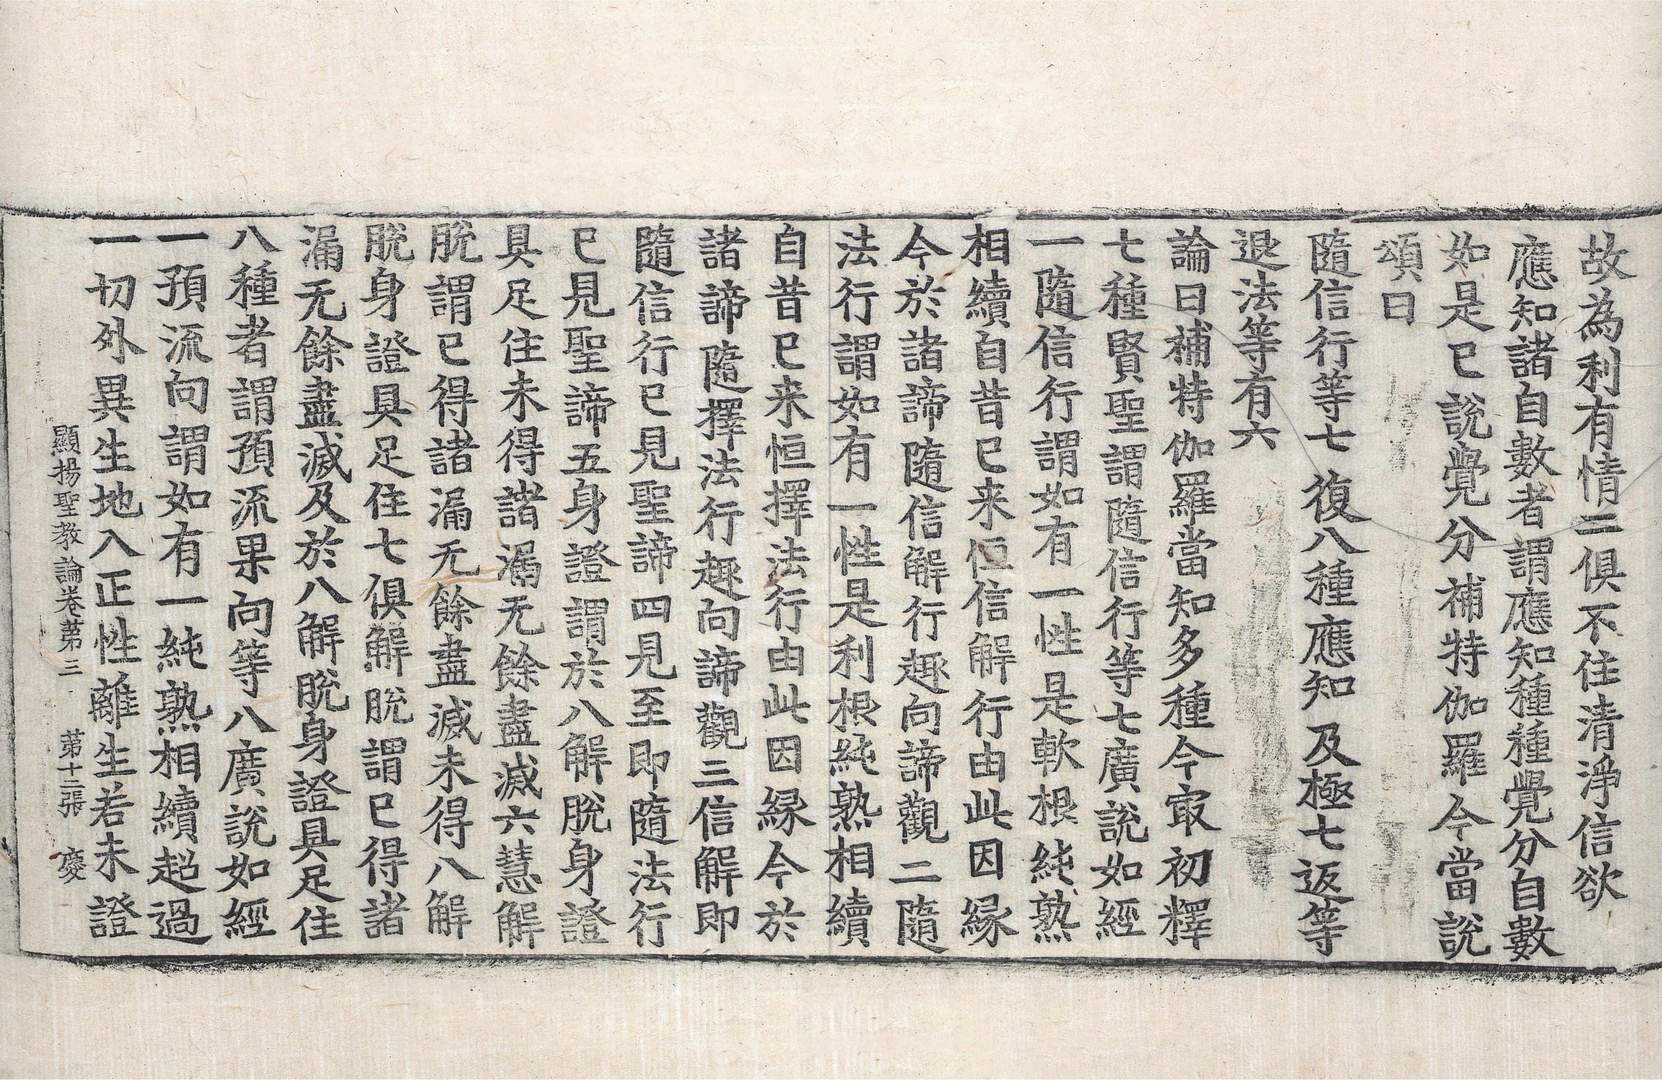 故為利有情二俱不住清淨信欲
應知諸自數者謂應知種種覺分自數
如是已說覺分補特伽羅今當說
頌曰
隨信行等七　復八種應知　及極七返等
退法等有六
論曰補特伽羅當知多種今㝡初釋
七種賢聖謂隨信行等七廣說如經
一隨信行謂如有一性是軟根純熟
相續自昔已来恒信解行由此因緣
今於諸諦隨信解行趣向諦觀二隨
法行謂如有一性是利根純熟相續
自昔已来恒擇法行由此因緣今於
諸諦隨擇法行趣向諦觀三信解即
隨信行已見聖諦四見至即隨法行
已見聖諦五身證謂於八解脫身證
具足住未得諸漏无餘盡滅六慧解
脫謂已得諸漏无餘盡滅未得八解
脫身證具足住七俱解脫謂已得諸
漏无餘盡滅及於八解脫身證具足住
八種者謂預流果向等八廣說如經
一預流向謂如有一純熟相續超過
一切外異生地入正性離生若未證
顯揚聖教論卷第三　第十二張　慶